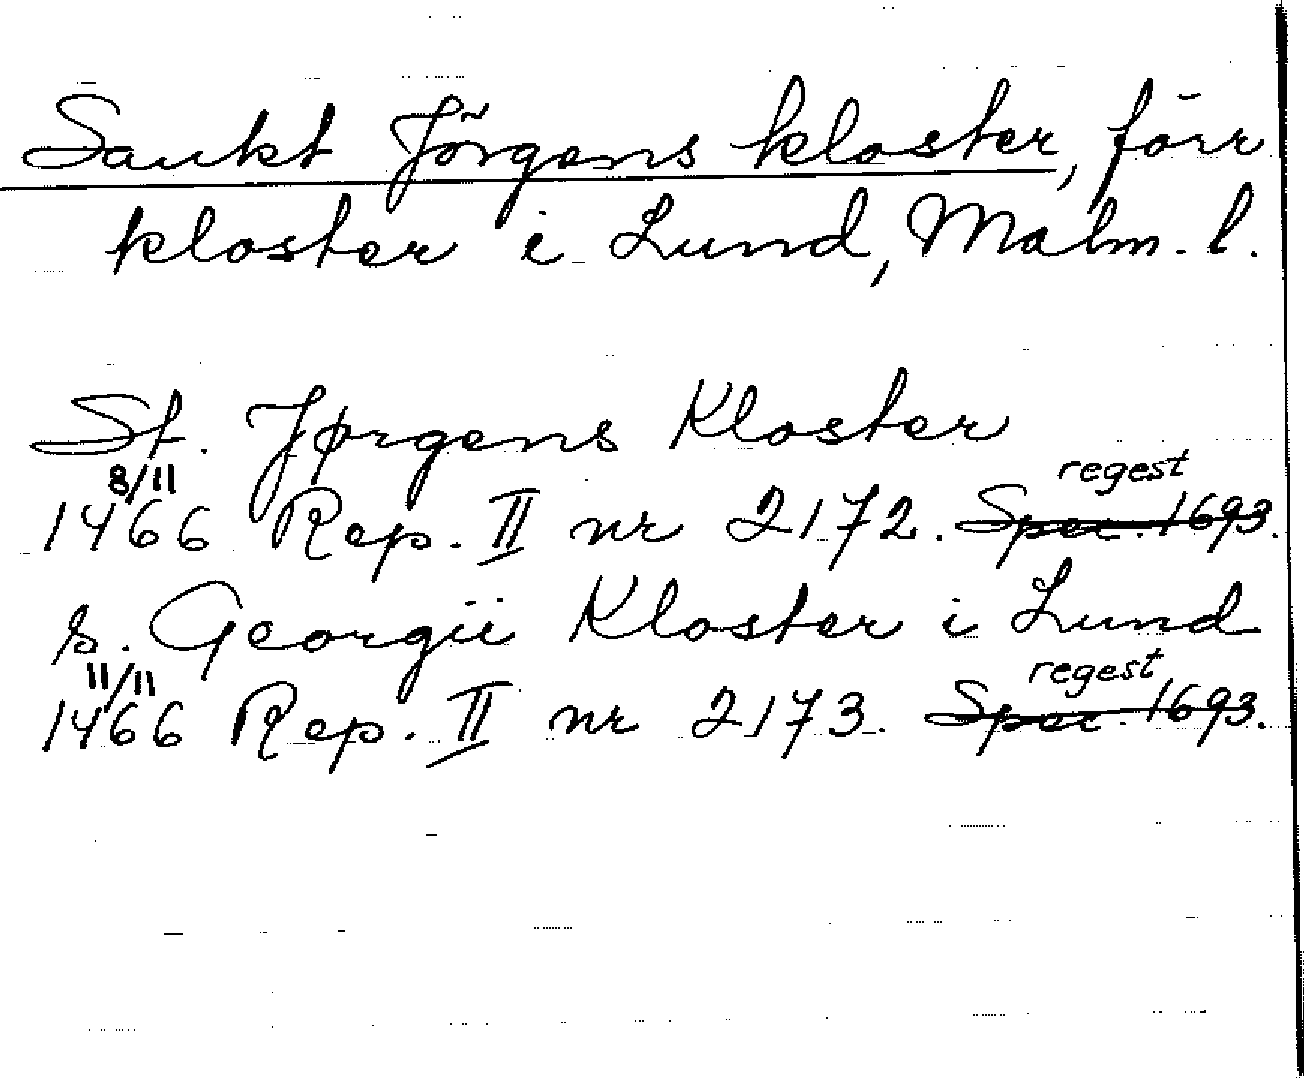 Sankt Jörgens kloster, förr
kloster i Lund, Malm. l.
St. Jørgens Kloster
8/11 regest
1466 Rep. II nr 2172. Spec. 1693.
s. Georgii Kloster i Lund
11/11 regest
1466 Rep. II nr 2173. Spec. 1693.